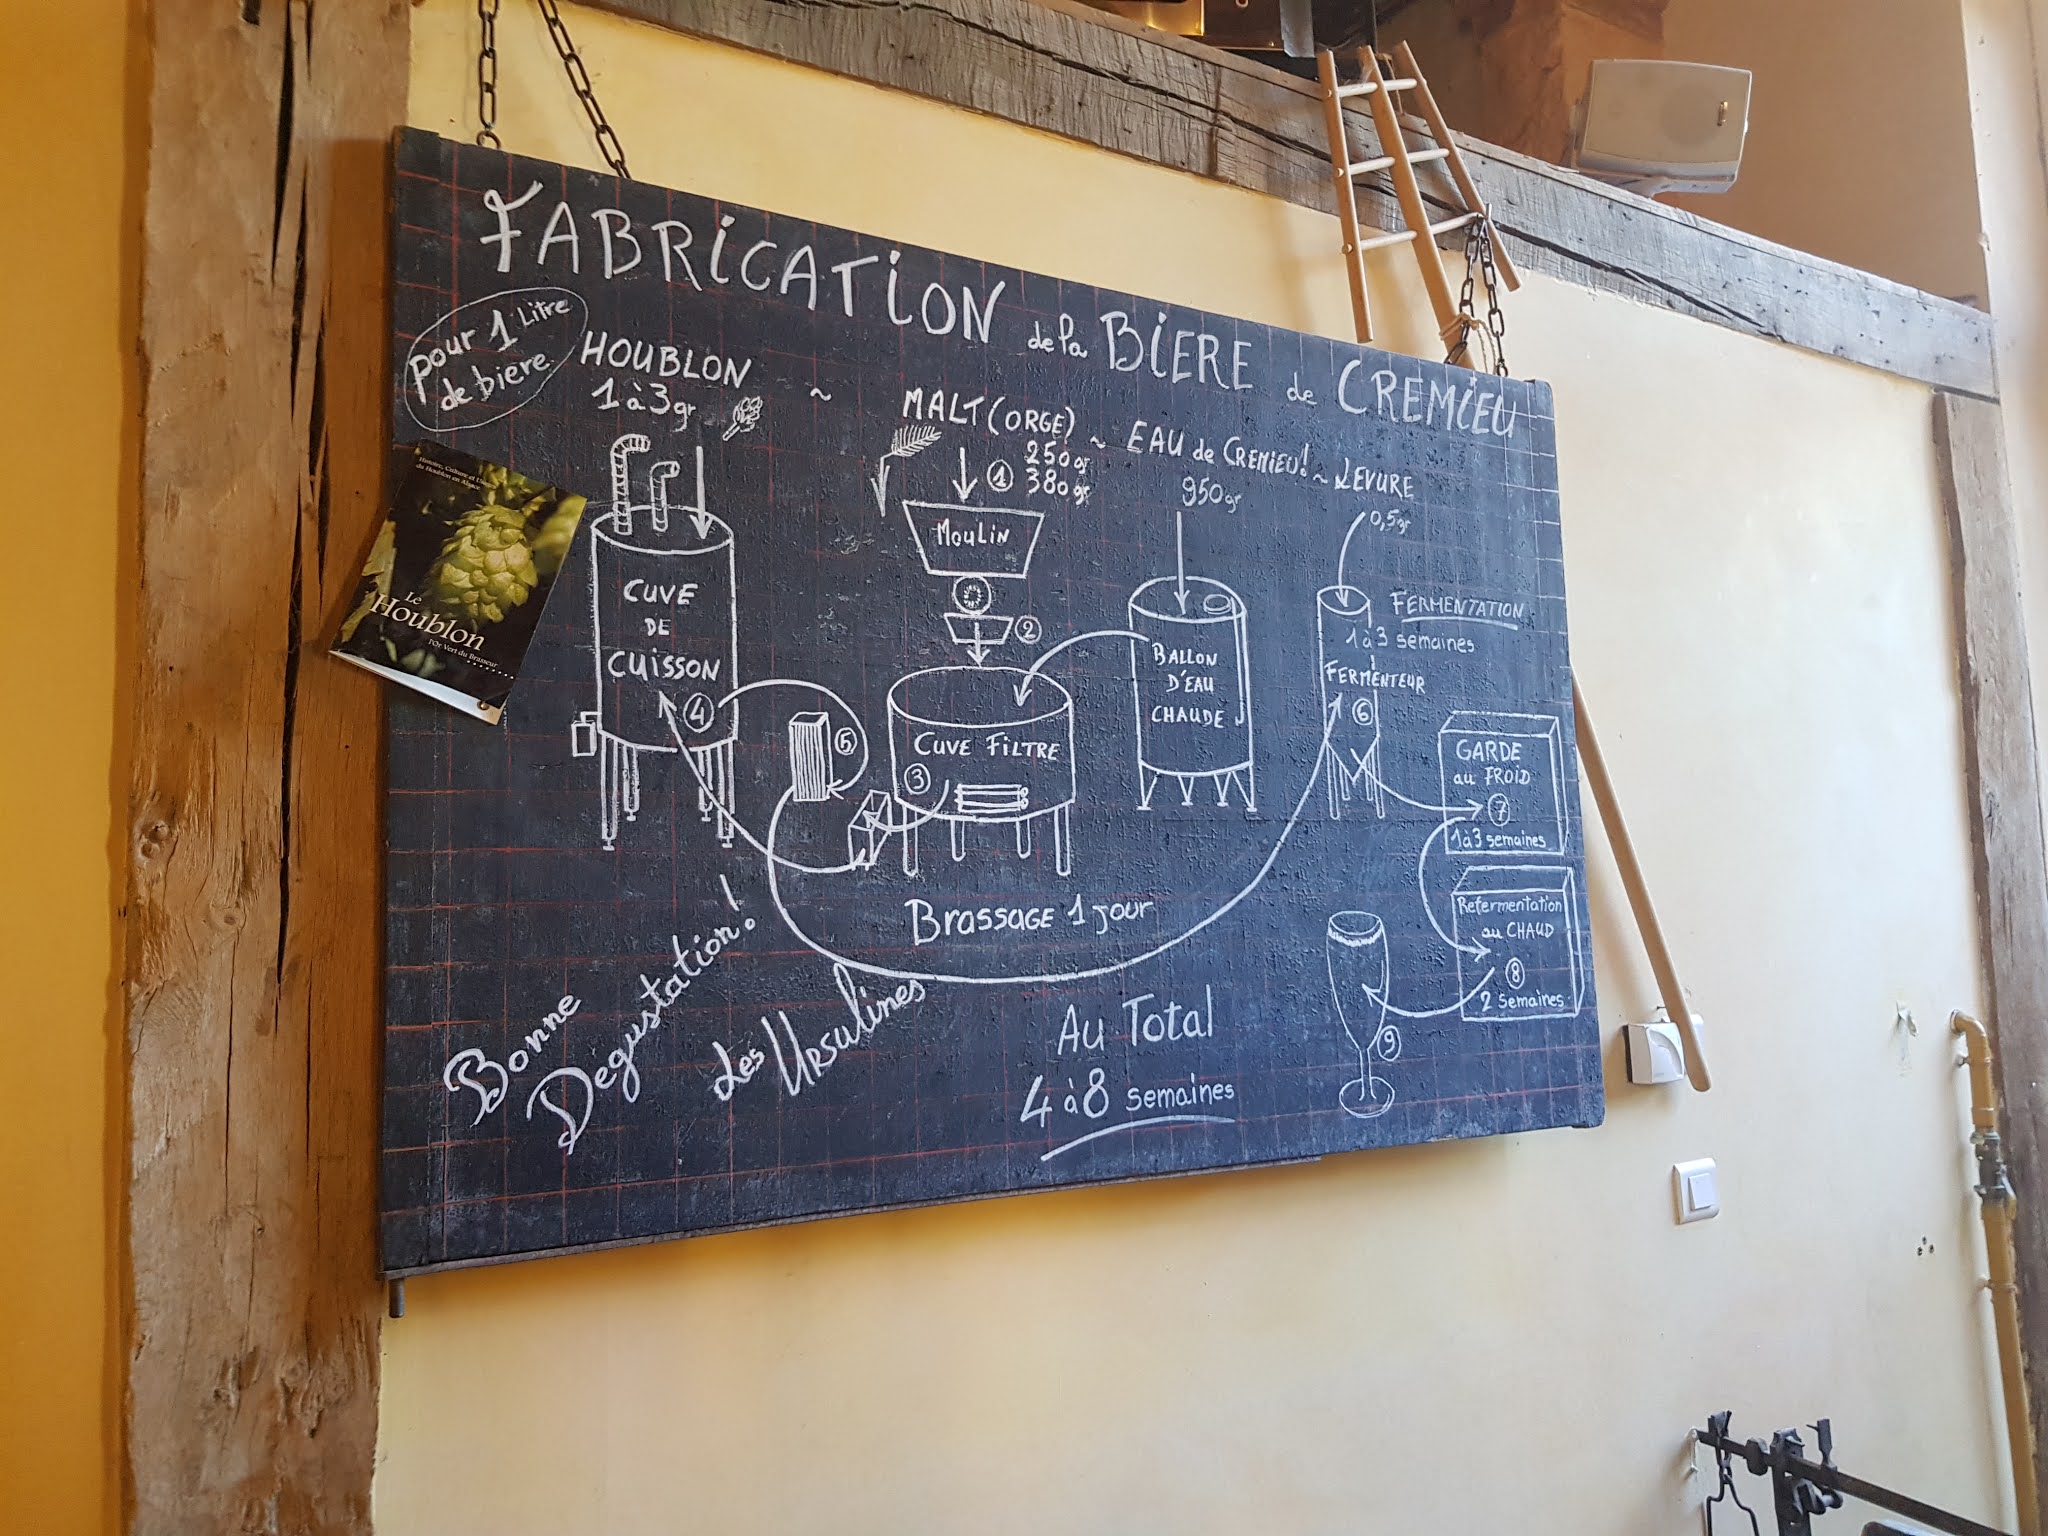 FABRICATION de la BIERE de CREMIEU
pour 1 Litre
de bière
HOUBLON
1 à 3 gr
~
MALT (ORGE)
250 gr
380 gr
~ EAU de CREMIEU!
950 gr
~ LEVURE
0,5 gr
1
MOULIN
2
CUVE
DE
CUISSON
4
5
CUVE FILTRE
3
BALLON
D'EAU
CHAUDE
FERMENTATION
1 à 3 semaines
FERMENTEUR
6
GARDE
au FROID
7
1 à 3 semaines
Refermentation
au CHAUD
8
2 semaines
9
Brassage 1 jour
Au Total
4 à 8 semaines
Bonne
Degustation!
Les Ursulines
Histoire, Culture et
du Houblon en Alsace
Le
Houblon
l'Or Vert du Brasseur